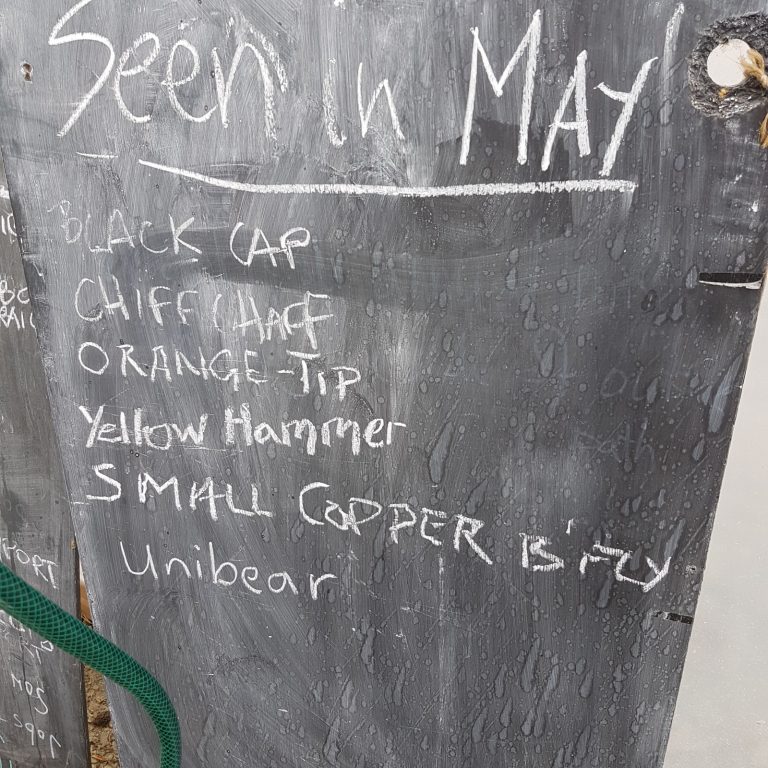 Seen in MAY
BLACK CAP
CHIFFCHAFF
ORANGE-TIP
Yellow Hammer
SMALL COPPER B'FLY
Unibear
PORT